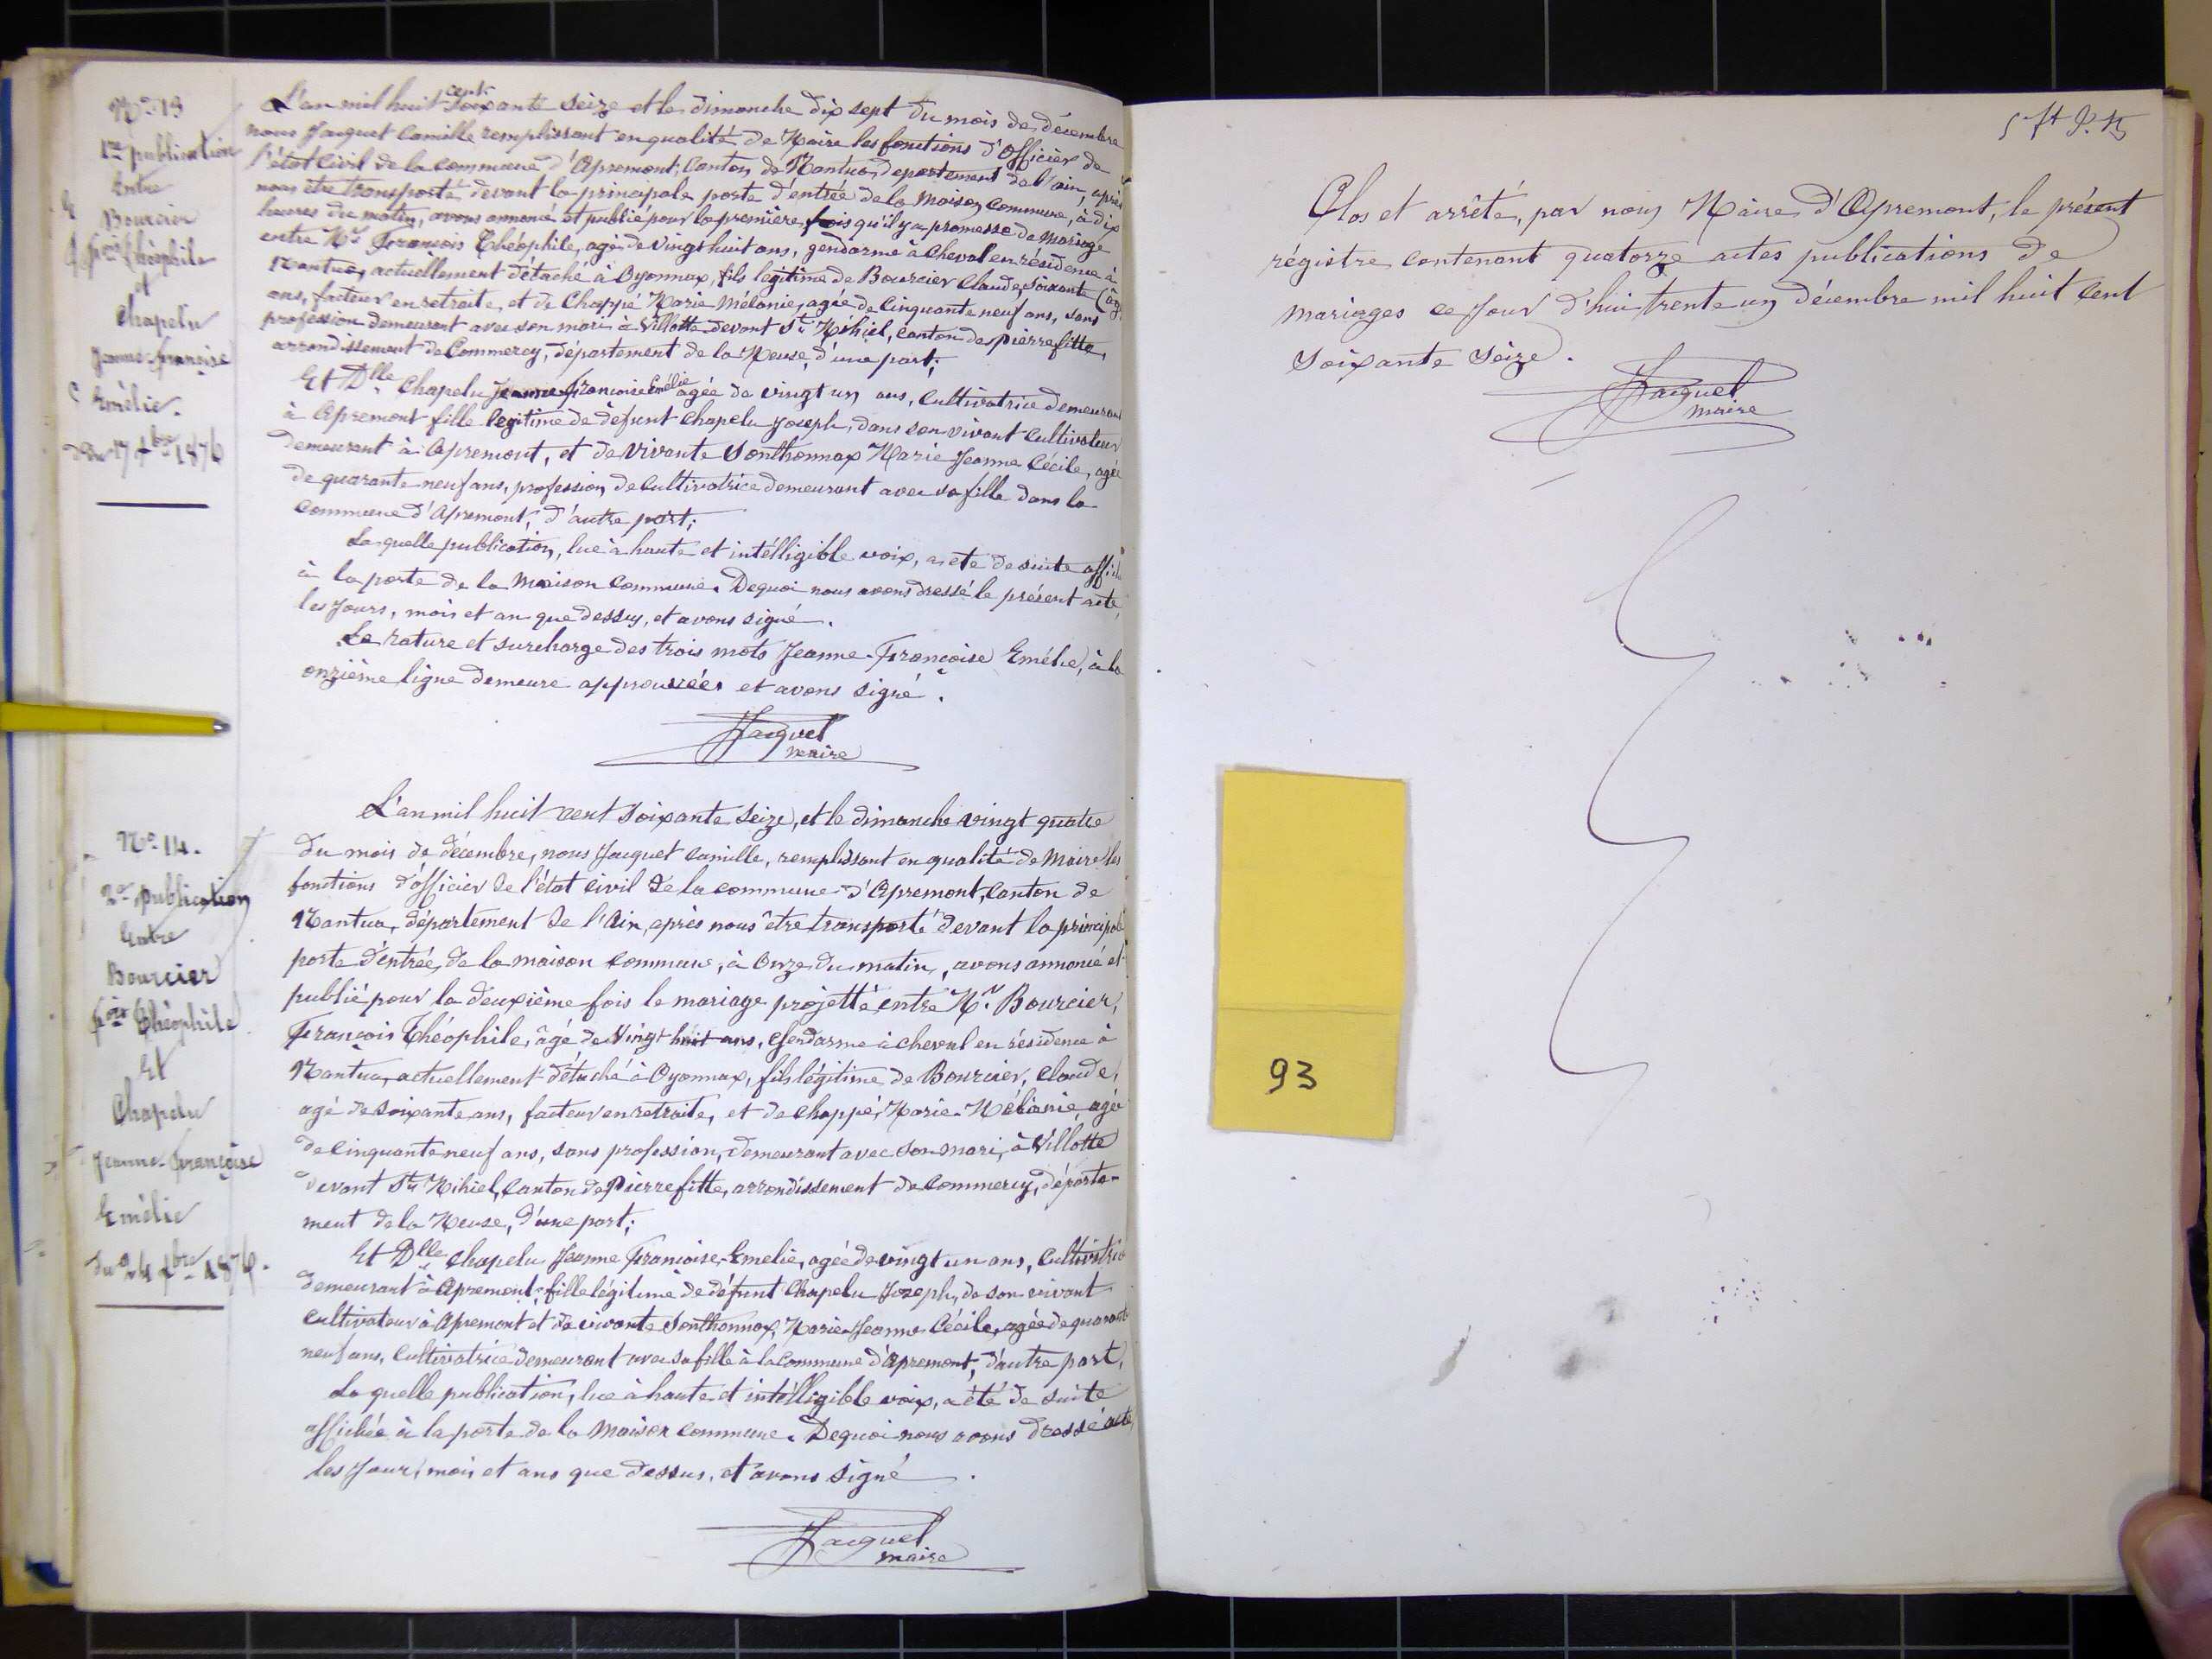 No 13
1re publication
Entre
Bourcier
fois Théophile
et
Chapelu
Jeanne-françoise
Emélie.
du 17 Xbre 1876
L'an mil huit cent soixante seize et le dimanche dix sept du mois de décembre
nous Jacquet Camille remplissant en qualité de Maire les fonctions d'officier de
l'état civil de la commune d'Apremont, Canton de Nantua, département de l'ain, après
nous être transporté devant la principale porte d'entrée de la Maison Commune, à dix
heures du matin, avons annoncé et publié pour la première fois qu'il y a promesse de Mariage
entre Mr François Théophile, agé de vingt huit ans, gendarme à Cheval en résidence à
Nantua, actuellement détaché à Oyonnax, fils légitime de Bourcier Claude, soixante (agé
ans, facteur en retraite, et de Chappé Marie Mélanie, agée de Cinquante neuf ans, sans
profession demeurant avec son mari à Villotte devant St Mihiel, Canton de pierrefitte,
arrondissement de Commercy, département de la Meuse, d'une part;
Et Dlle Chapelu Jeanne françoise Emélie agée de vingt un ans, Cultivatrice demeurant
à Apremont fille légitime de défunt Chapelu Joseph, dans son vivant Cultivateur
demeurant à Apremont, et de vivante Sonthonnax Marie Jeanne Cécile, agée
de quarante neuf ans, profession de Cultivatrice demeurant avec sa fille dans la
Commune d'Apremont, d'autre part;
La quelle publication, lue à haute et intélligible voix, a été de suite affi
à la porte de la Maison Commune. De quoi nous avons dressé le présent acte,
les Jours, mois et an que dessus, et avons signé.
La rature et surcharge des trois mots Jeanne-Françoise Emélie, à la
onzième ligne demeure approuvées et avons signé.
Jacquet
maire
No 14.
2e publication
Entre
Bourcier
fois Théophile
Et
Chapelu
Jeanne-françoise
Emélie
du 24 Xbre 1876.
L'an mil huit cent soixante seize, et le dimanche vingt quatre
du mois de décembre, nous Jacquet Camille, remplissant en qualité de Maire les
fonctions d'officier de l'état civil de la commune d'Apremont, Canton de
Nantua, département de l'Ain, après nous être transporté devant la principale
porte d'entrée, de la maison commune, à onze du matin, avons annoncé et
publié pour la deuxième fois le mariage projetté entre Mr Bourcier,
François Théophile, âgé de Vingt huit ans, Gendarme à cheval en résidence à
Nantua, actuellement détaché à Oyonnax, fils légitime de Bourcier, Claude,
agé de soixante ans, facteur en retraite, et de Chappé, Marie-Mélanie, agée
de cinquante neuf ans, sans profession, demeurant avec son mari, à Villotte
devant St Mihiel, Canton de Pierrefitte, arrondissement de Commercy, départe-
ment de la Meuse, d'une part;
Et Dlle Chapelu Jeanne Françoise-Emelie, agée de vingt un ans, Cultivatrice
demeurant à Apremont, fille légitime de défunt Chapelu Joseph, de son vivant
Cultivateur à Apremont et de vivante Sonthonnax, Marie-Jeanne Cécile, agée de quarante
neuf ans, Cultivatrice demeurant avec sa fille à la commune d'Apremont, d'autre part.
La quelle publication, lue à haute et intélligible voix, a été de suite
affichée à la porte de la Maison commune. De quoi nous avons dressé acte,
les Jour, mois et ans que dessus, et avons signé.
Jacquet
maire
Clos et arrêté, par nous Maire d'Apremont, le présent
régistre contenant quatorze actes publications de
mariages ce Jour d'hui trente un décembre mil huit Cent
Soixante Seize.
Jacquet
maire
93